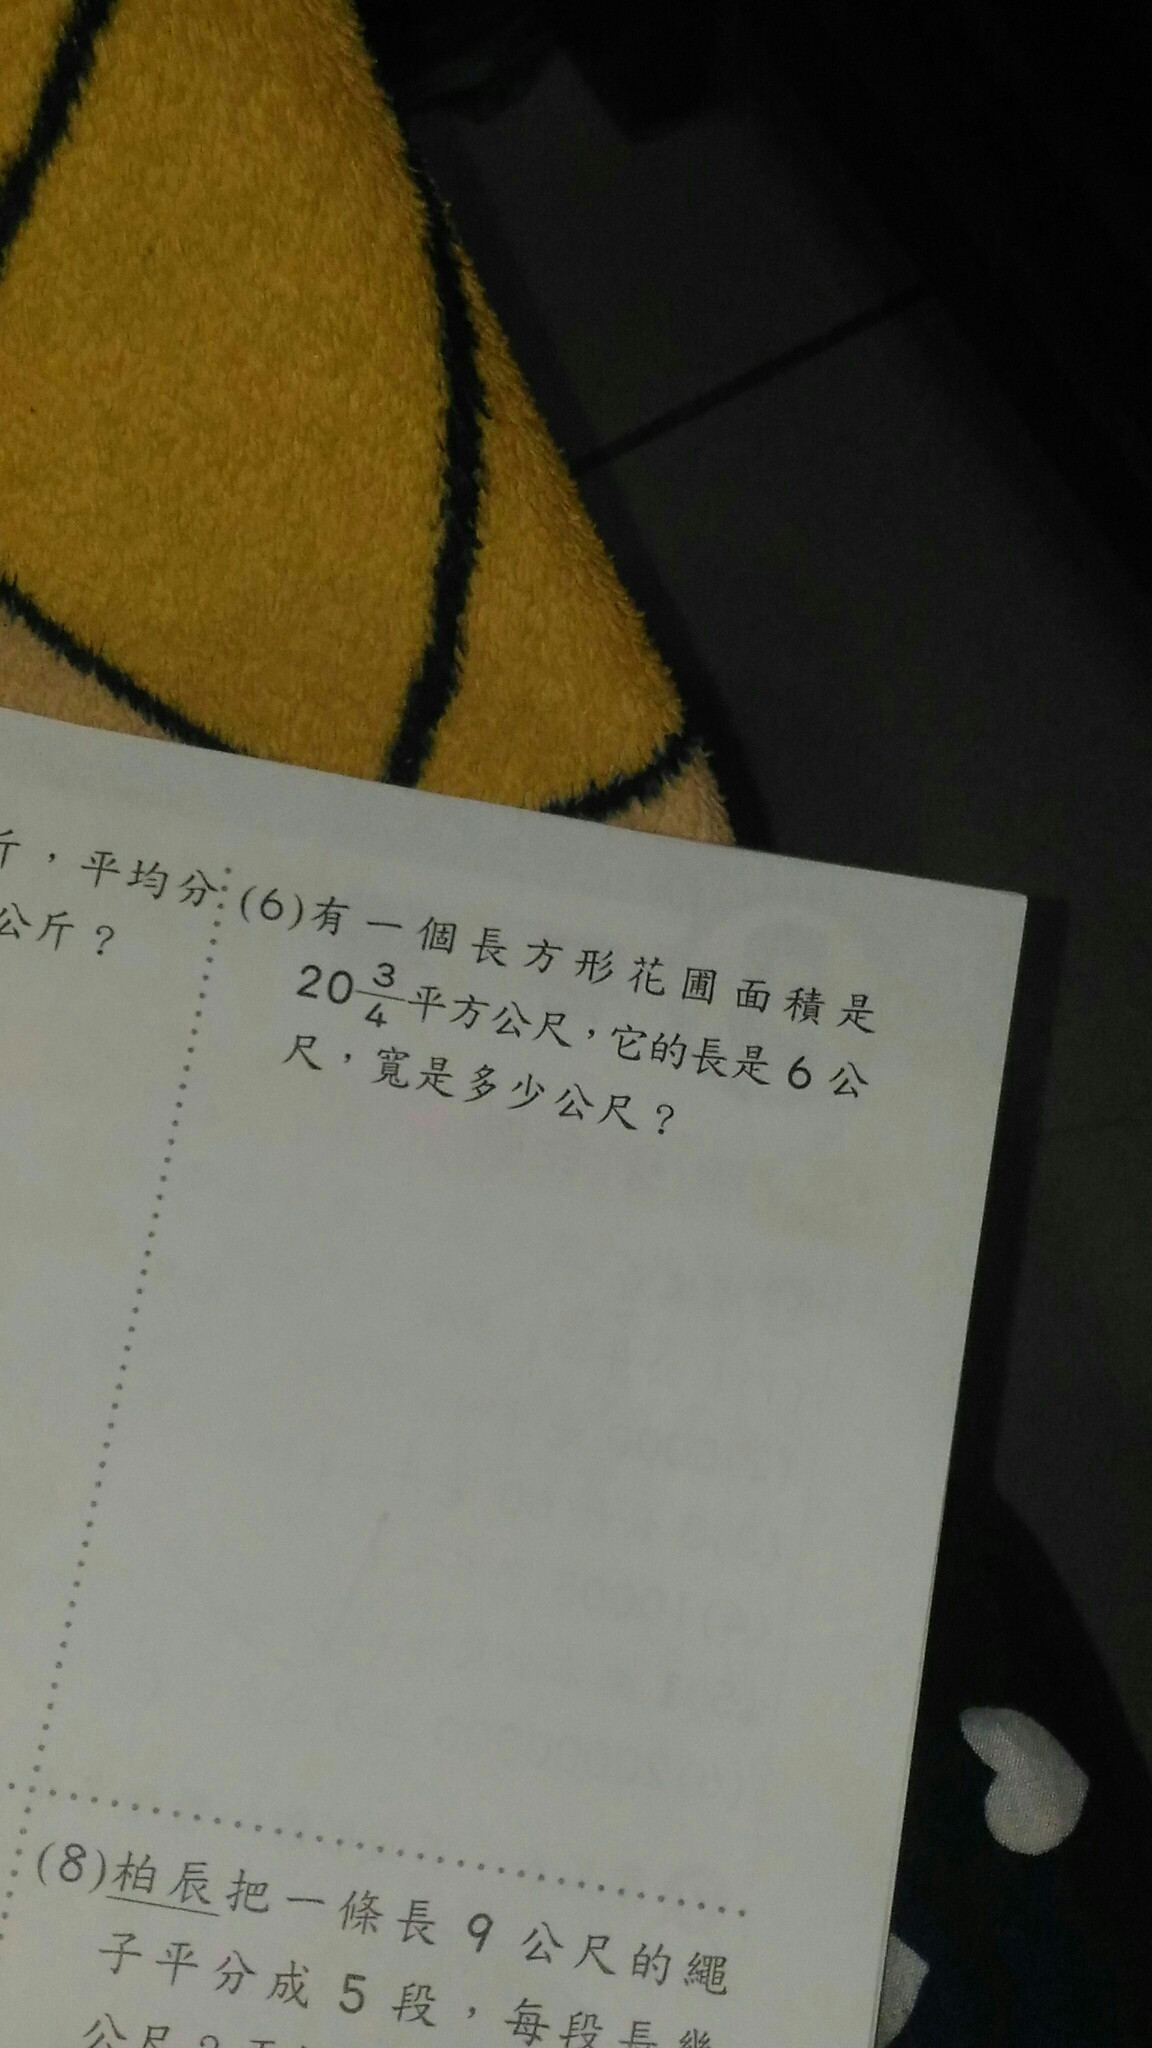 斤，平均分
公斤？
(6)有一個長方形花圃面積是
20 3/4 平方公尺，它的長是 6 公
尺，寬是多少公尺？
(8)柏辰把一條長 9 公尺的繩
子平分成 5 段，每段長幾
公尺？